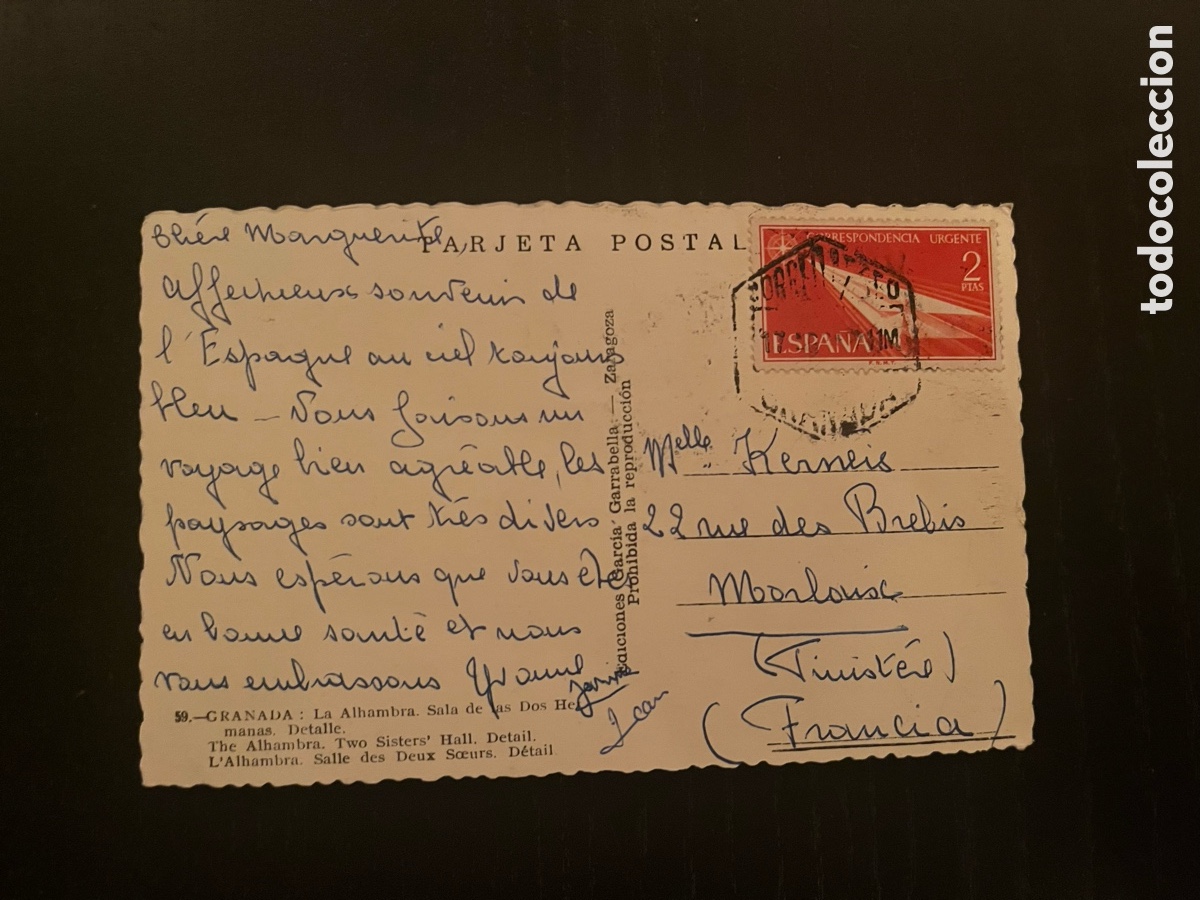 Chère Marguerite,
TARJETA POSTAL
Affectueux souvenir de
l'Espagne au ciel toujours
bleu - Nous faisons un
voyage bien agréable, les
paysages sont très divers
Nous espérons que vous êtes
en bonne santé et nous
vous embrassons Yvonne
Jean
59.—GRANADA : La Alhambra. Sala de las Dos Her-
manas. Detalle.
The Alhambra. Two Sisters' Hall. Detail.
L'Alhambra. Salle des Deux Sœurs. Détail
Ediciones García Garrabella — Zaragoza
Prohibida la reproducción
CORRESPONDENCIA URGENTE
2
PTAS
ESPAÑA
F.N.M.T.
11M
GRANADA
Melle Kerneis
22 rue des Brebis
Morlaix
(Finistére)
(Francia)
todocoleccion